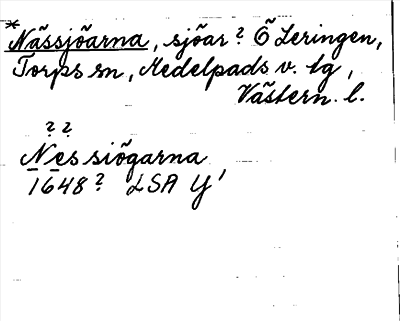 *Nässjöarna, sjöar? Ö Leringen,
Torps sn, Medelpads v. tg,
Västern. l.
? ?
Nessiögarna
1648? LSA Y'